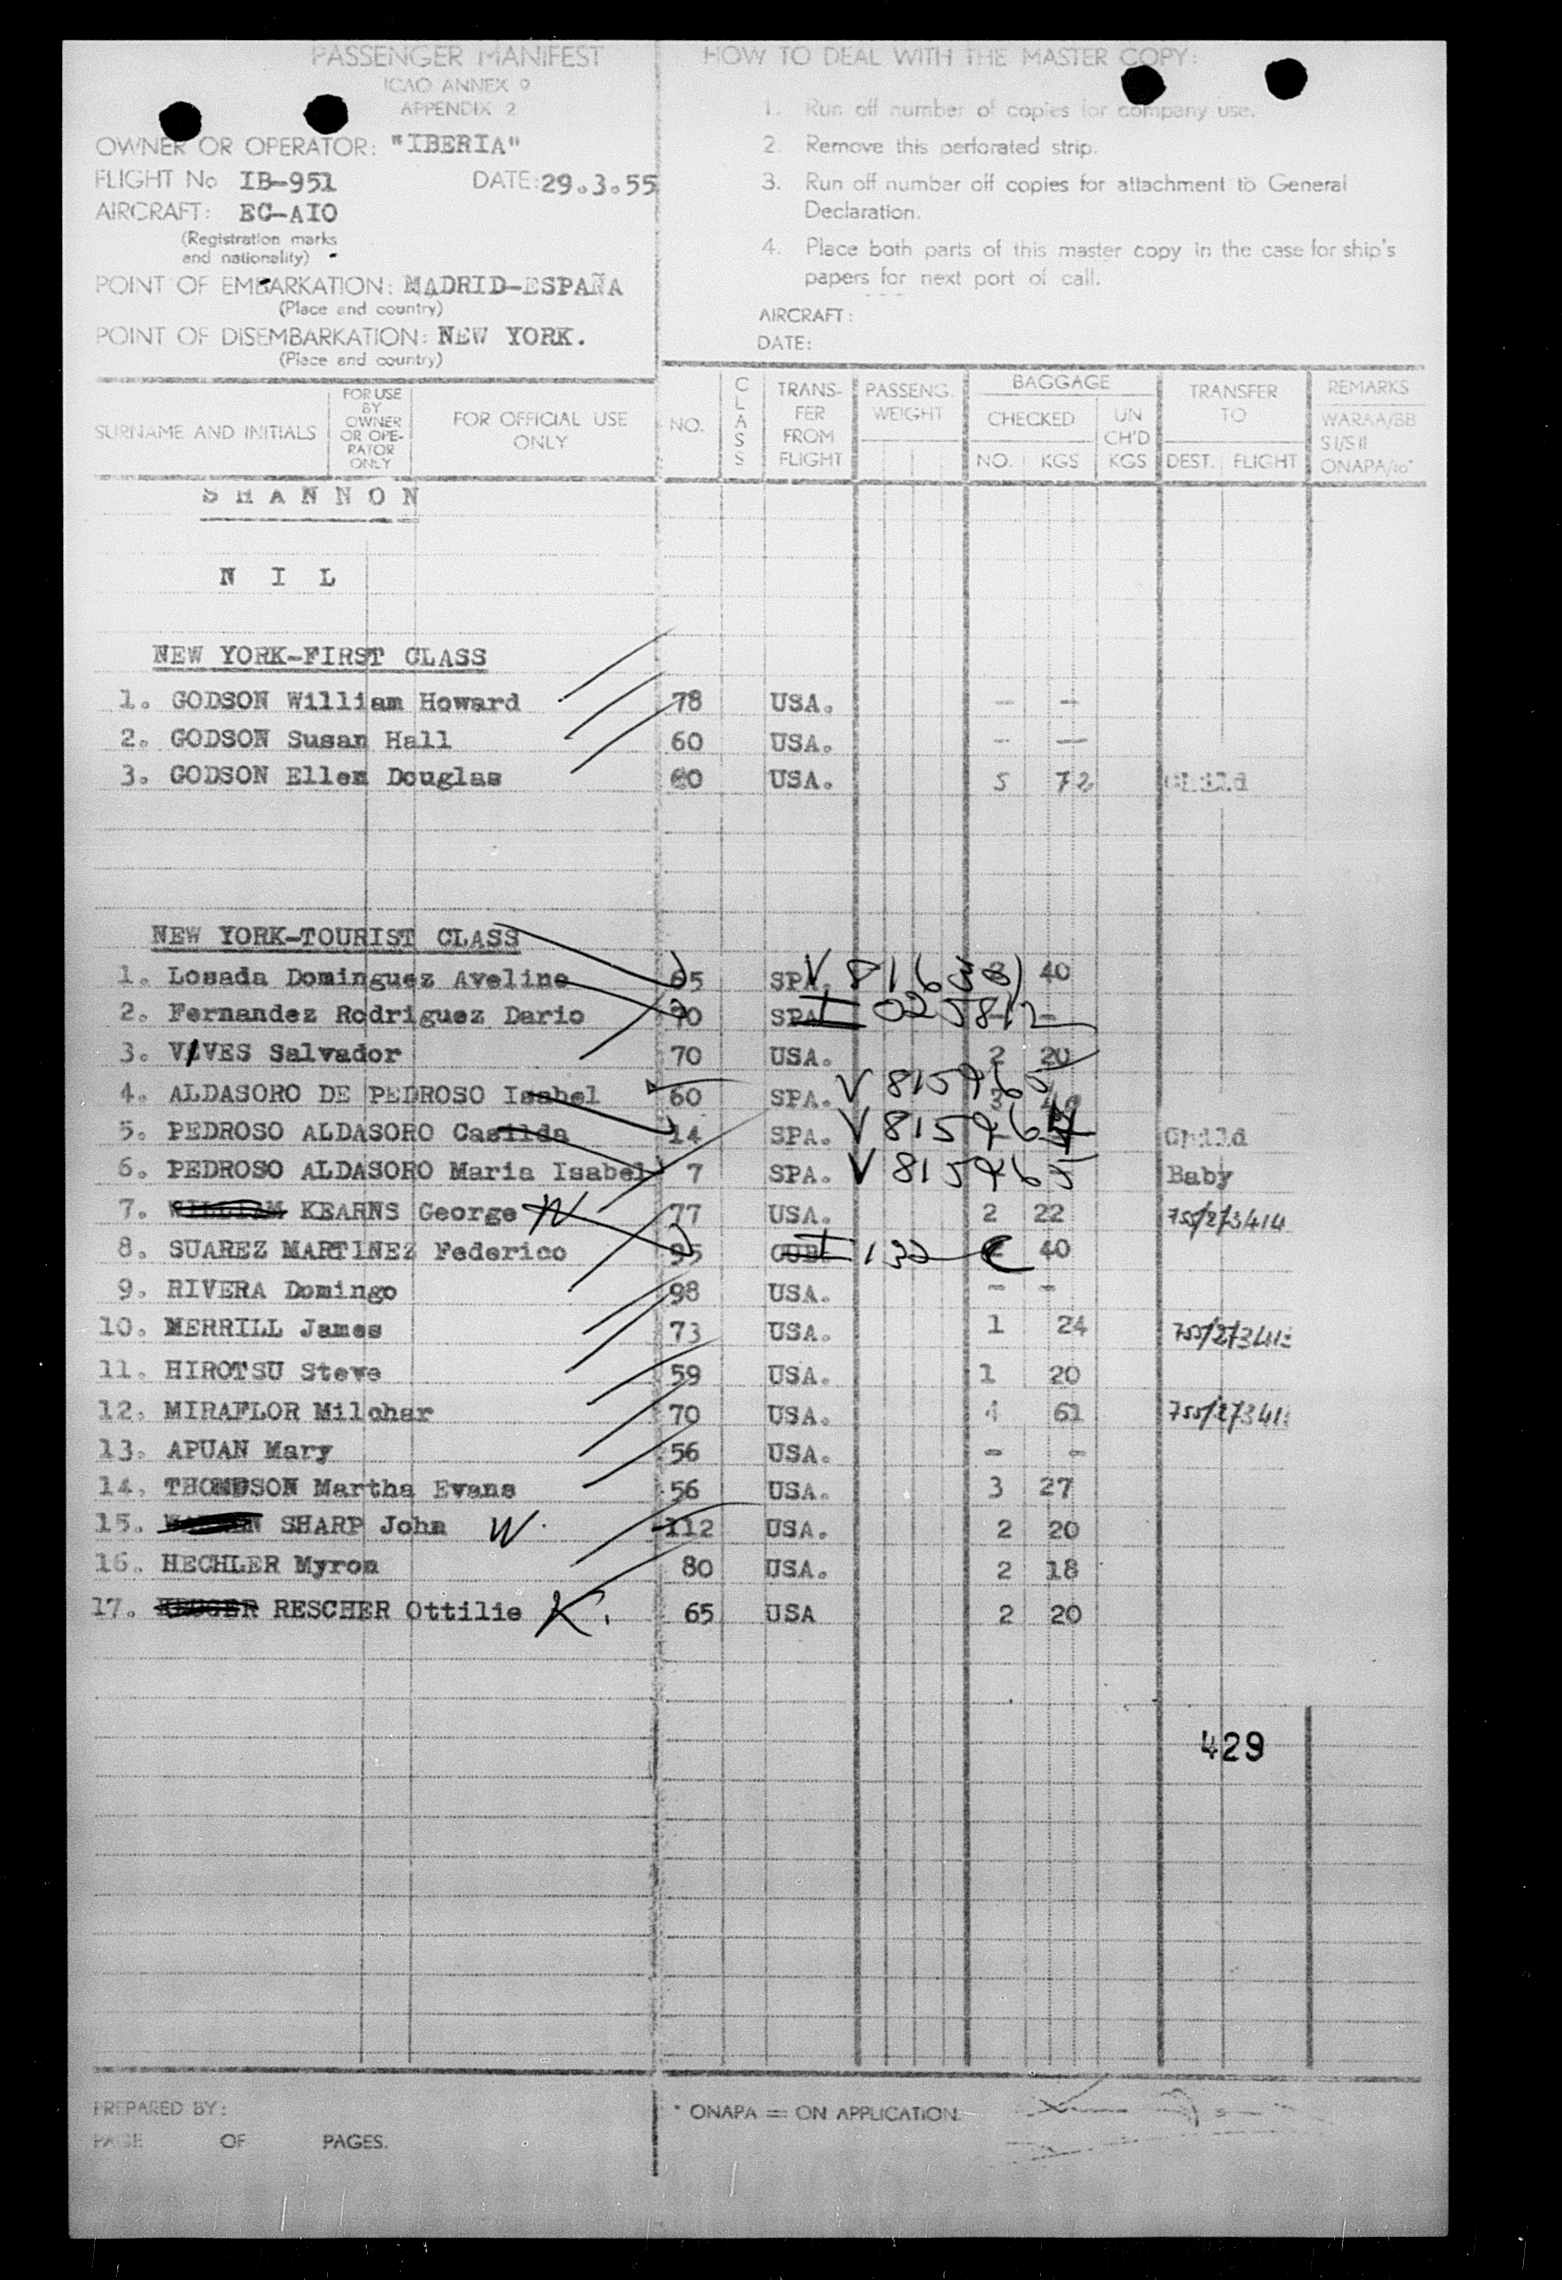 PASSENGER MANIFEST
ICAO ANNEX 9
APPENDIX 2
OWNER OR OPERATOR: "IBERIA"
FLIGHT No IB-951 DATE: 29.3.55
AIRCRAFT: EC-AIO
(Registration marks
and nationality)
POINT OF EMBARKATION: MADRID-ESPAÑA
(Place and country)
POINT OF DISEMBARKATION: NEW YORK.
(Place and country)
HOW TO DEAL WITH THE MASTER COPY:
1. Run off number of copies for company use.
2. Remove this perforated strip.
3. Run off number off copies for attachment to General
Declaration.
4. Place both parts of this master copy in the case for ship's
papers for next port of call.
AIRCRAFT:
DATE:
SURNAME AND INITIALS
FOR USE
BY
OWNER
OR OPE-
RATOR
ONLY
FOR OFFICIAL USE
ONLY
NO.
CLASS
TRANS-
FER
FROM
FLIGHT
PASSENG.
WEIGHT
BAGGAGE
CHECKED
NO. KGS
UN
CH'D
KGS
TRANSFER
TO
DEST. FLIGHT
REMARKS
WARAA/BB
SI/SII
ONAPA/io*
SHANNON
NIL
NEW YORK-FIRST CLASS
1. GODSON William Howard 78 USA. - -
2. GODSON Susan Hall 60 USA. - -
3. GODSON Ellen Douglas 60 USA. 5 72 Child
NEW YORK-TOURIST CLASS
1. Losada Dominguez Aveline 65 SPA. V 81633) 40
2. Fernandez Rodriguez Dario 70 SPA I 025812 -
3. VIVES Salvador 70 USA. 2 20
4. ALDASORO DE PEDROSO Isabel 60 SPA. V 815965
5. PEDROSO ALDASORO Casilda 14 SPA. V 815967 Child
6. PEDROSO ALDASORO Maria Isabel 7 SPA. V 815965 Baby
7. WILLIAM KEARNS George W 77 USA. 2 22 755/273414
8. SUAREZ MARTINEZ Federico 95 CUB. I 132 C 40
9. RIVERA Domingo 98 USA. - -
10. MERRILL James 73 USA. 1 24 755/273413
11. HIROTSU Steve 59 USA. 1 20
12. MIRAFLOR Milchar 70 USA. 4 61 755/27341
13. APUAN Mary 56 USA. - -
14. THOMPSON Martha Evans 56 USA. 3 27
15. SHARP John W. 112 USA. 2 20
16. HECHLER Myron 80 USA. 2 18
17. KRUGER RESCHER Ottilie K. 65 USA 2 20
429
PREPARED BY:
PAGE OF PAGES.
* ONAPA = ON APPLICATION.